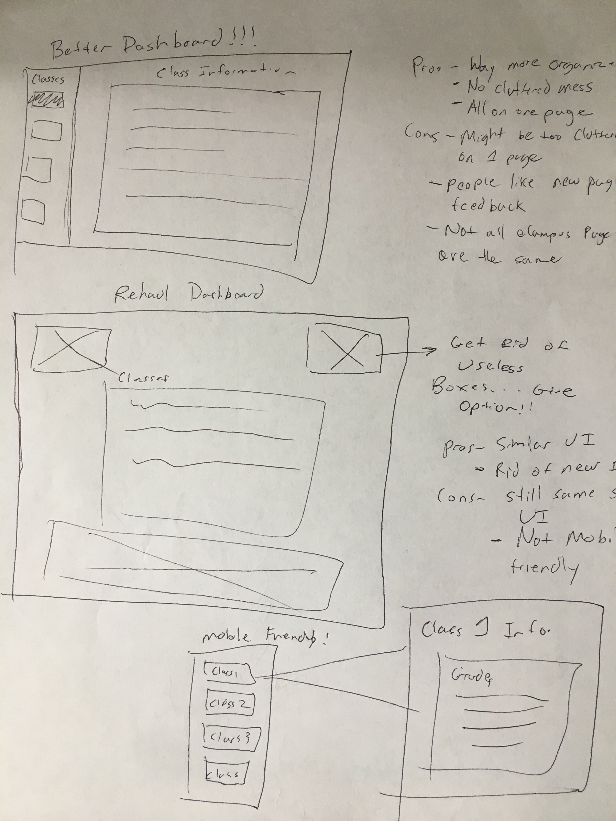 Better Dashboard!!!
Classes
Class Information
Pros - Way more organize
- No cluttered mess
- All on one page
Cons - Might be too Clutter
on 1 page
- people like new pag
feedback
- Not all eCampus Page
are the same
Rehaul Dashboard
Classes
Get Rid of
Useless
Boxes... Give
Option!!
pros- Similar UI
- Rid of new
Cons- Still same s
UI
- Not Mobil
friendly
mobile Friendly!
Class 1
Class 2
Class 3
Class
Class 1 Info
Grades